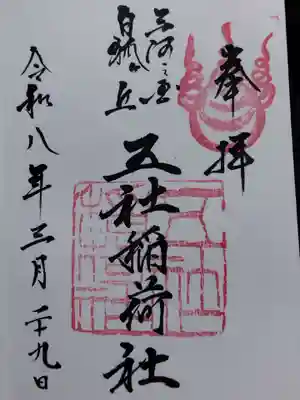 奉拝
三河之国
白狐ヶ丘
五社稲荷社
令和八年三月二十九日